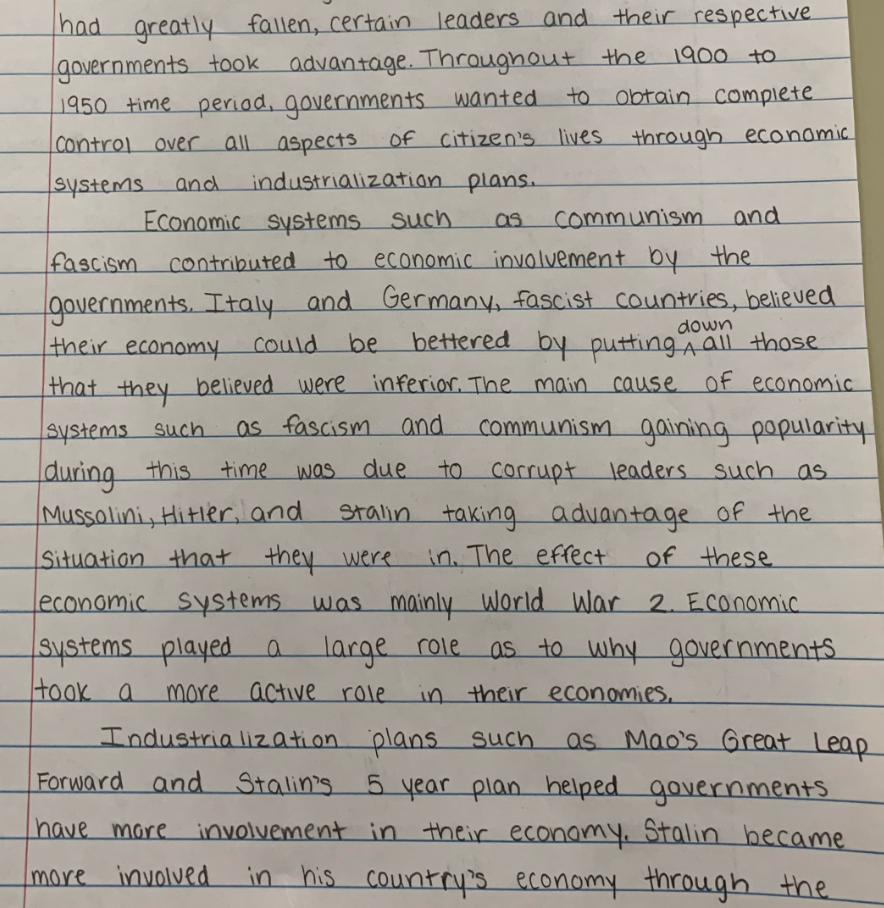 had greatly fallen, certain leaders and their respective
governments took advantage. Throughout the 1900 to
1950 time period, governments wanted to obtain complete
control over all aspects of citizen's lives through economic
systems and industrialization plans.
Economic systems such as communism and
fascism contributed to economic involvement by the
governments. Italy and Germany, fascist countries, believed
their economy could be bettered by putting ^down all those
that they believed were inferior. The main cause of economic
systems such as fascism and communism gaining popularity
during this time was due to corrupt leaders such as
Mussolini, Hitler, and Stalin taking advantage of the
situation that they were in. The effect of these
economic systems was mainly World War 2. Economic
systems played a large role as to why governments
took a more active role in their economies.
Industrialization plans such as Mao's Great Leap
Forward and Stalin's 5 year plan helped governments
have more involvement in their economy. Stalin became
more involved in his country's economy through the